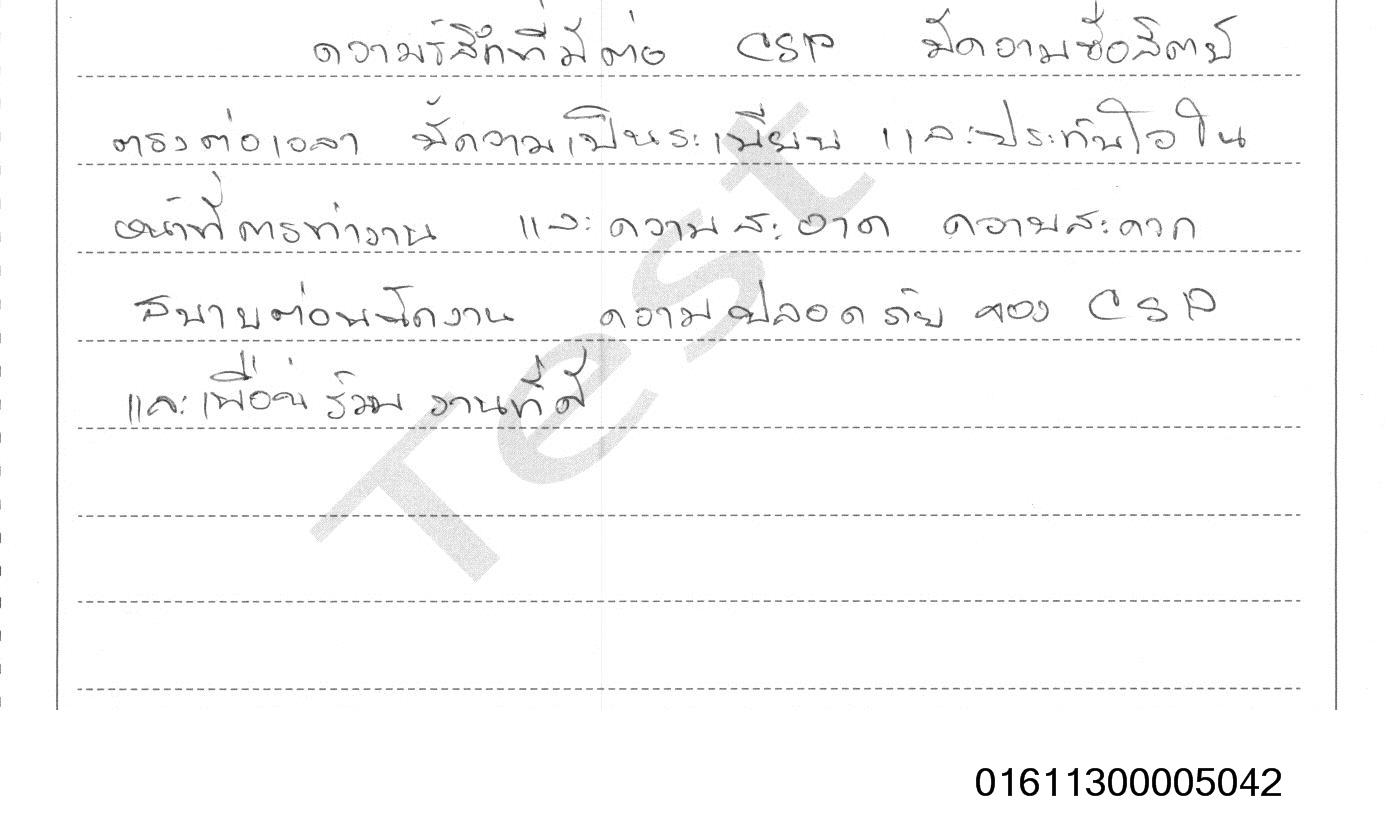 ความรู้สึกที่มีต่อ CSP มีความซื่อสัตย์
ตรงต่อเวลา มีความเป็นระเบียบ และประทับใจใน
หน้าที่การทำงาน และความสะอาด ความสะดวก
สบายต่อพนักงาน ความปลอดภัย ของ CSP
และเพื่อนร่วมงานที่ดี
Test
01611300005042